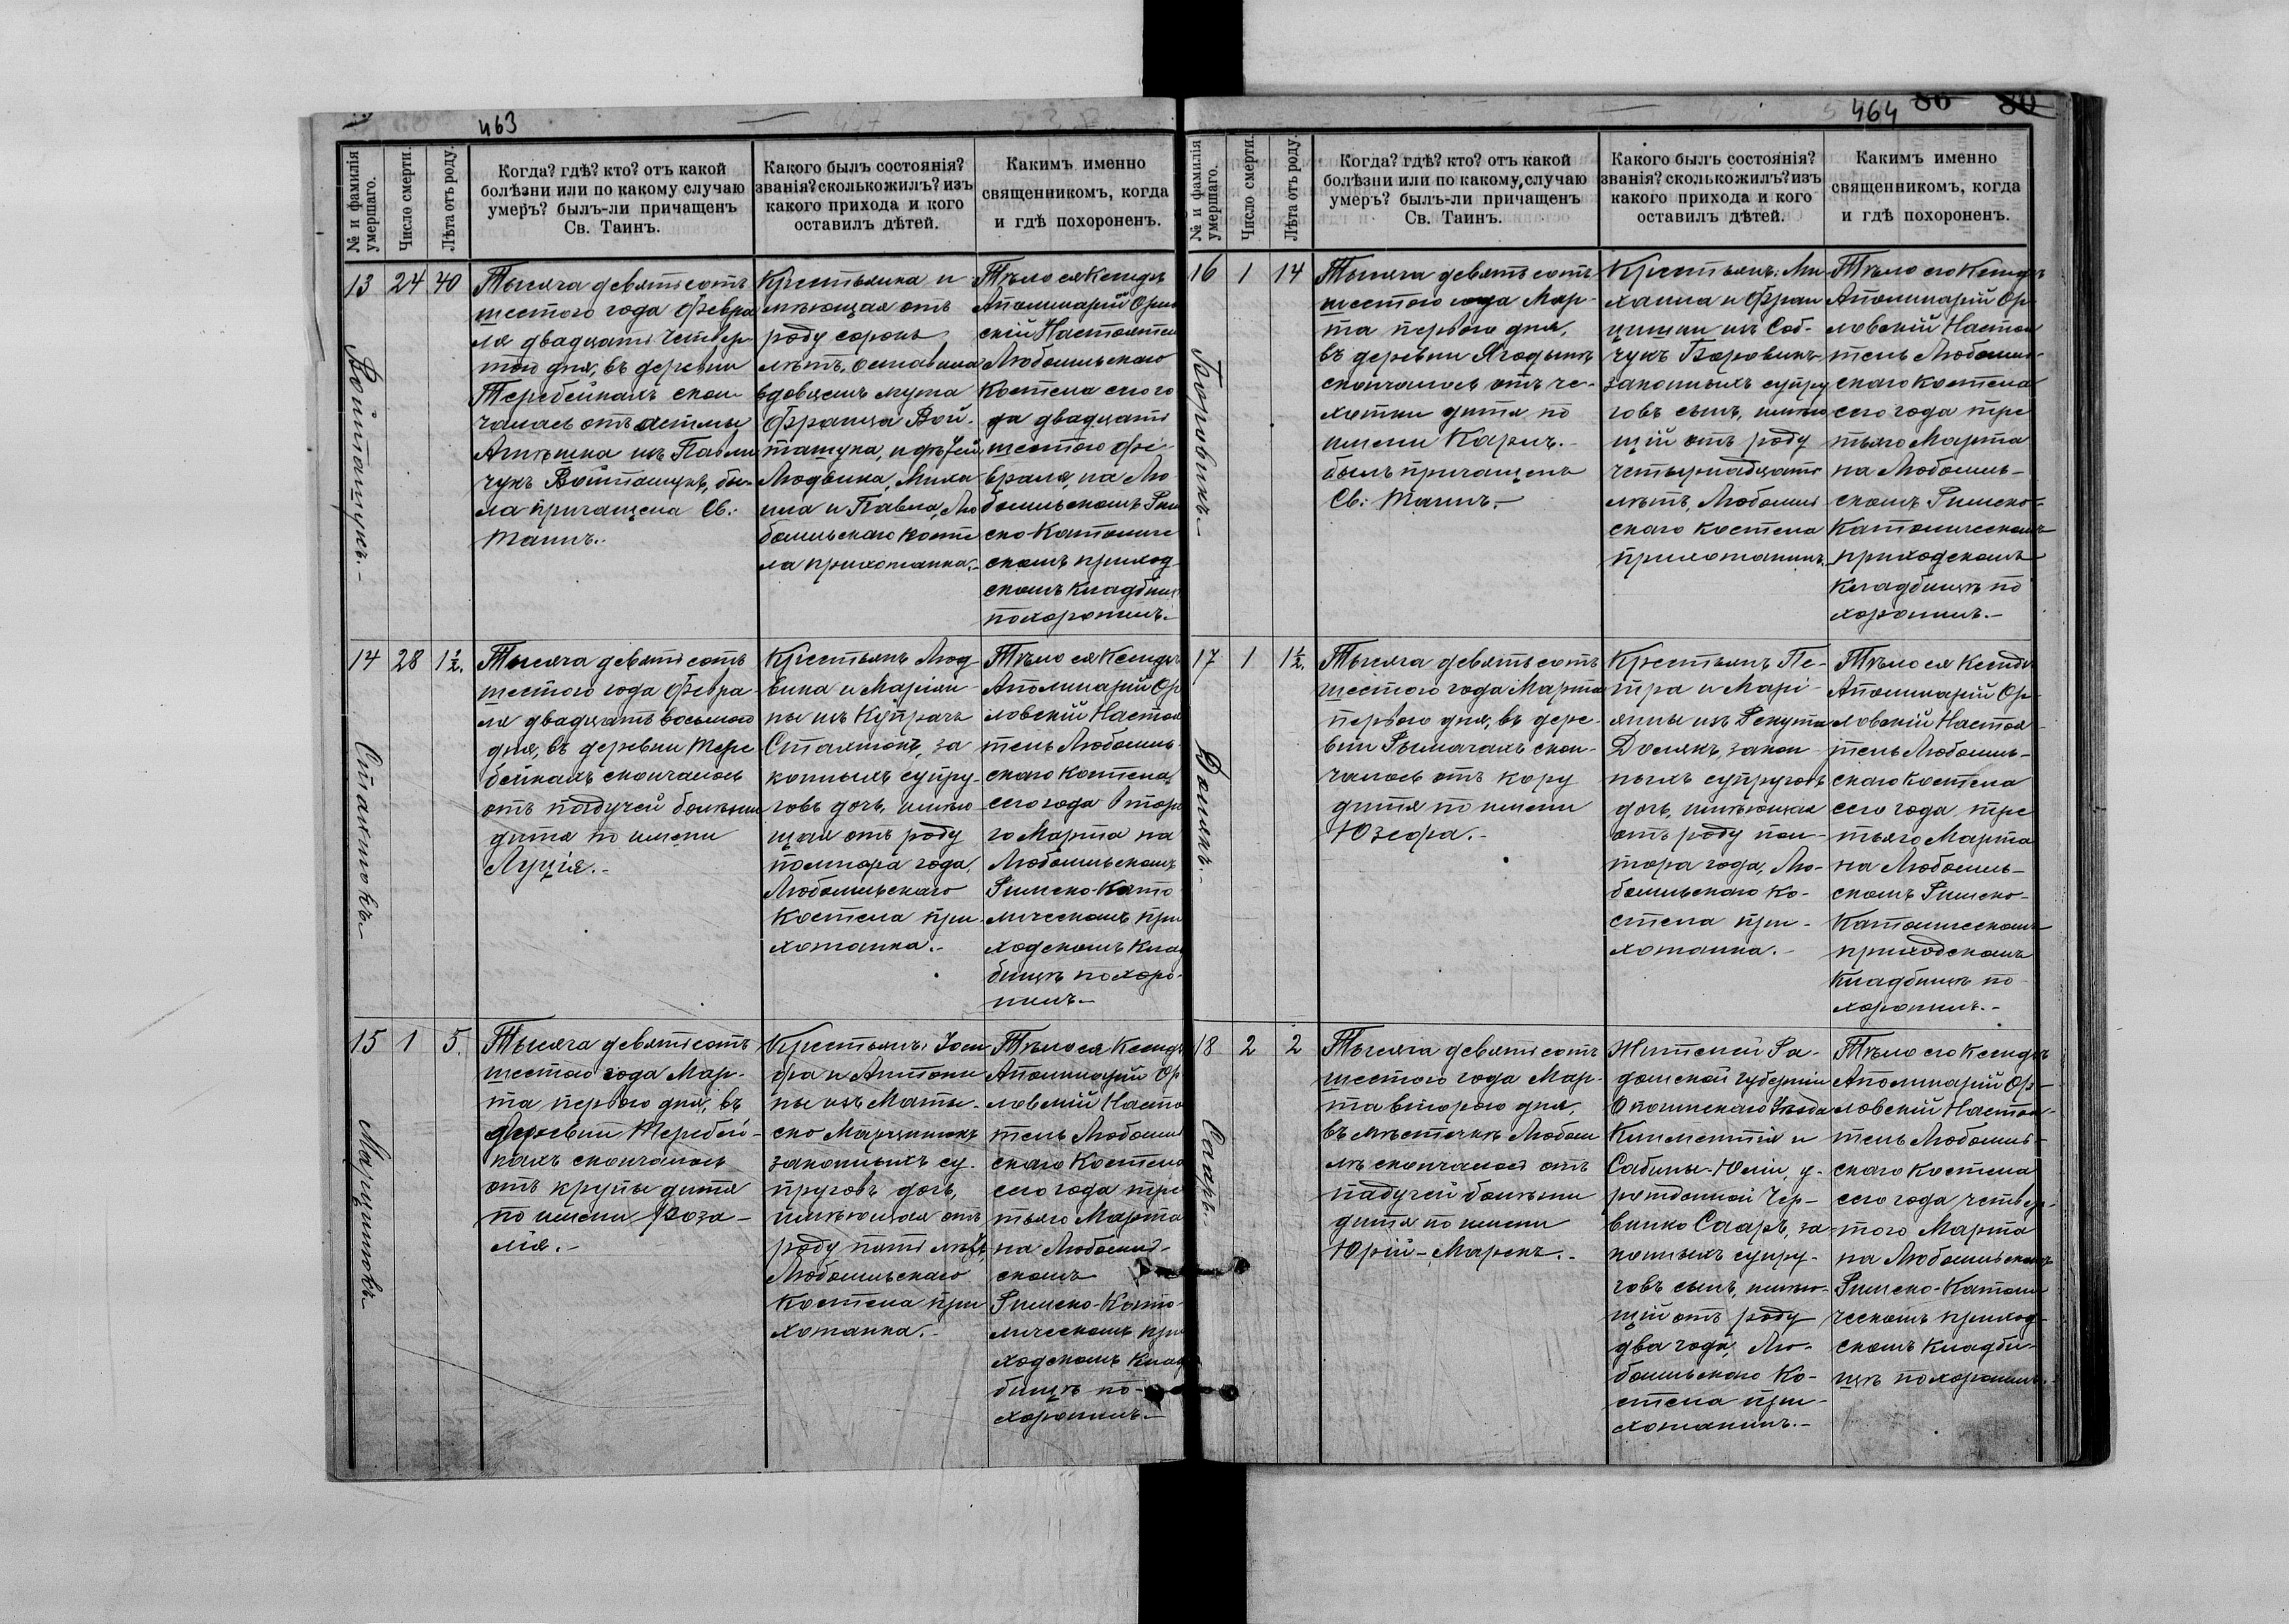 463
№ и фамилія умершаго.
Число смерти.
Лѣта отъ роду.
Когда? гдѣ? кто? отъ какой
болѣзни или по какому случаю
умеръ? былъ-ли причащенъ
Св. Таинъ.
Какого былъ состоянія?
званія? сколько жилъ? изъ
какого прихода и кого
оставилъ дѣтей.
Какимъ именно
священникомъ, когда
и гдѣ похороненъ.
13
Войташукъ.-
24
40
Тысяча девятьсотъ
шестого года Февра
ля двадцать четвер-
того дня, въ деревни
Теребейкахъ скон
чалась отъ астмы
Агнѣшка изъ Павли
чукъ Войташукъ, бы-
ла причащена Св:
Таинъ.-
Крестьянка и
мѣющая отъ
роду сорокъ
лѣтъ, оставила
вдовцемъ мужа
Франца Вой-
ташука, и дѣтей
Людвика, Миха
ила и Павла, Лю
бомльскаго косте
ла прихожанка.-
Тѣло ея Ксендзъ
Аполинарій Орлов
скій Настоятель
Любомльскаго
Костела сего го
да двадцать
шестого фе-
враля, на Лю
бомльскомъ Рим
ско-Католиче
скомъ приход-
скомъ кладбищѣ
похоронилъ.-
14
Стахнюкъ
28
1½.
Тысяча девятьсотъ
шестого года Февра-
ля двадцать восьмого
дня, въ деревни Тере
бейкахъ скончалось
отъ падучей болѣзни
дитя по имени
Луція.-
Крестьянъ Люд-
вика и Маріян-
ны изъ Купрачъ
Стахнюкъ, за
конныхъ супру-
говъ дочь, имѣю-
щая отъ роду
полтора года,
Любомльскаго
Костела при-
хожанка.-
Тѣло ея Ксендзъ
Аполинарій Ор
ловскій Настоя
тель Любомль-
скаго Костела
сего года второ
го Марта на
Любомльскомъ
Римско-Като
лическомъ при
ходскомъ клад
бищѣ похоро-
нилъ.-
15
Марцинюкъ
1
5.
Тысяча девятьсотъ
шестого года Мар-
та перваго дня, въ
деревни Теребей-
кахъ скончалось
отъ крупы дитя
по имени Роза-
лія.-
Крестьянъ: Іоси
фа и Антони
ны изъ Маты-
сно Марцинюкъ
законныхъ су-
пруговъ дочь,
имѣющая отъ
роду пять лѣтъ,
Любомльскаго
Костела при
хожанка.-
Тѣло ея Ксендзъ
Аполинарій Ор
ловскій Настоя
тель Любомль
скаго Костела
сего года тре
тьяго Марта
на Любомль-
скомъ
Римско-Като-
лическомъ при
ходскомъ клад
бищѣ по-
хоронилъ.-
464 86 80
№ и фамилія умершаго.
Число смерти.
Лѣта отъ роду.
Когда? гдѣ? кто? отъ какой
болѣзни или по какому случаю
умеръ? былъ-ли причащенъ
Св. Таинъ.
Какого былъ состоянія?
званія? сколько жилъ? изъ
какого прихода и кого
оставилъ дѣтей.
Какимъ именно
священникомъ, когда
и гдѣ похороненъ.
16
1
14
Тысяча девятьсотъ
шестого года Мар-
та перваго дня,
въ деревни Ягодынѣ
скончалось отъ че-
хотки дитя по
имени Карлъ.-
былъ причащенъ
Св: Таинъ.-
Крестьянъ: Ми
хаила и Фран
цишки изъ Соб-
чукъ Боровикъ-
законныхъ супру
говъ сынъ, имѣю
щій отъ роду
четырнадцать
лѣтъ, Любомль
скаго костела
прихожанинъ.-
Тѣло его Ксендзъ
Аполинарій Ор-
ловскій Настоя
тель Любомль-
скаго костела
сего года тре
тьяго Марта
на Любомль-
скомъ Римско-
Католическомъ
приходскомъ
Кладбищѣ по
хоронилъ.-
17
1
1½.
Тысяча девятьсотъ
шестого года Марта
перваго дня, въ дере-
вни Рымачахъ скон-
чалось отъ кору
дитя по имени
Юзефа.-
Крестьянъ Пе-
тра и Марі-
янны изъ Рекута
законныхъ супруговъ
дочь, имѣющая
отъ роду пол-
тора года, Лю-
бомльскаго ко-
стела при-
хожанка.-
Тѣло ея Ксендзъ
Аполинарій Ор-
ловскій Настоя-
тель Любомль-
скаго Костела
сего года тре
тьяго Марта
на Любомль-
скомъ Римско-
Католическомъ
приходскомъ
Кладбищѣ по
хоронилъ.-
18
Сааръ.
2
2
Тысяча девятьсотъ
шестого года Мар-
та второго дня,
въ мѣстечкѣ Любом
лѣ скончалось отъ
падучей болѣзни
дитя по имени
Юрій-Марекъ.-
Жителей Ра-
домской губерніи
Опочинскаго Уѣзда
Климентія и
Сабины-Юліи, у-
рожденной Чер-
винко Сааръ, за-
конныхъ супру-
говъ сынъ, имѣю-
щій отъ роду
два года, Лю-
бомльскаго Ко-
стела при-
хожанинъ.-
Тѣло его Ксендзъ
Аполинарій Ор-
ловскій Настоя-
тель Любомль-
скаго Костела
сего года четвер-
того Марта
на Любомльскомъ
Римско-Католи
ческомъ приход-
скомъ кладби-
щѣ похоронилъ.